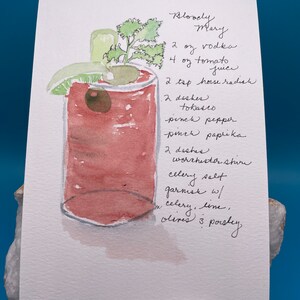 Bloody
Mary
2 oz vodka
4 oz tomato
juice
2 tsp horseradish
2 dashes
tobasco
pinch pepper
pinch paprika
2 dashes
celery salt
garnish w/
celery, lime,
olives & parsley